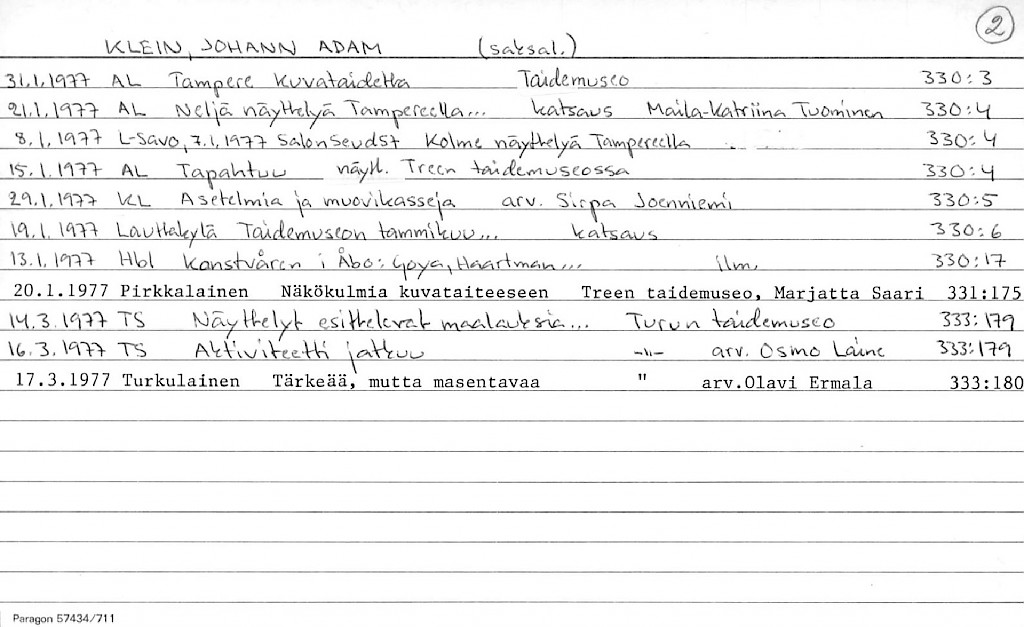 2
KLEIN, JOHANN ADAM (saksal.)
31.1.1977 AL Tampere kuvataidetta Taidemuseo 330:3
21.1.1977 AL Neljä näyttelyä Tampereella... katsaus Maila-Katriina Tuominen 330:4
8.1.1977 L-Savo, 7.1.1977 SalonSeudSt Kolme näyttelyä Tampereella 330:4
15.1.1977 AL Tapahtuu näytt. Treen taidemuseossa 330:4
29.1.1977 KL Asetelmia ja muovikasseja arv. Sirpa Joenniemi 330:5
19.1.1977 Lauttakylä Taidemuseon tammikuu... katsaus 330:6
13.1.1977 Hbl Konstvåren i Åbo: Goya, Haartman... ilm. 330:17
20.1.1977 Pirkkalainen Näkökulmia kuvataiteeseen Treen taidemuseo, Marjatta Saari 331:175
14.3.1977 TS Näyttelyt esittelevät maalauksia... Turun taidemuseo 333:179
16.3.1977 TS Aktiviteetti jatkuu -"- arv. Osmo Laine 333:179
17.3.1977 Turkulainen Tärkeää, mutta masentavaa " arv.Olavi Ermala 333:180
Paragon 57434/711